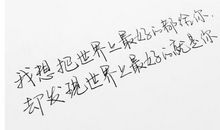 我想把世界上最好的都给你.
却发现世界上最好的就是你